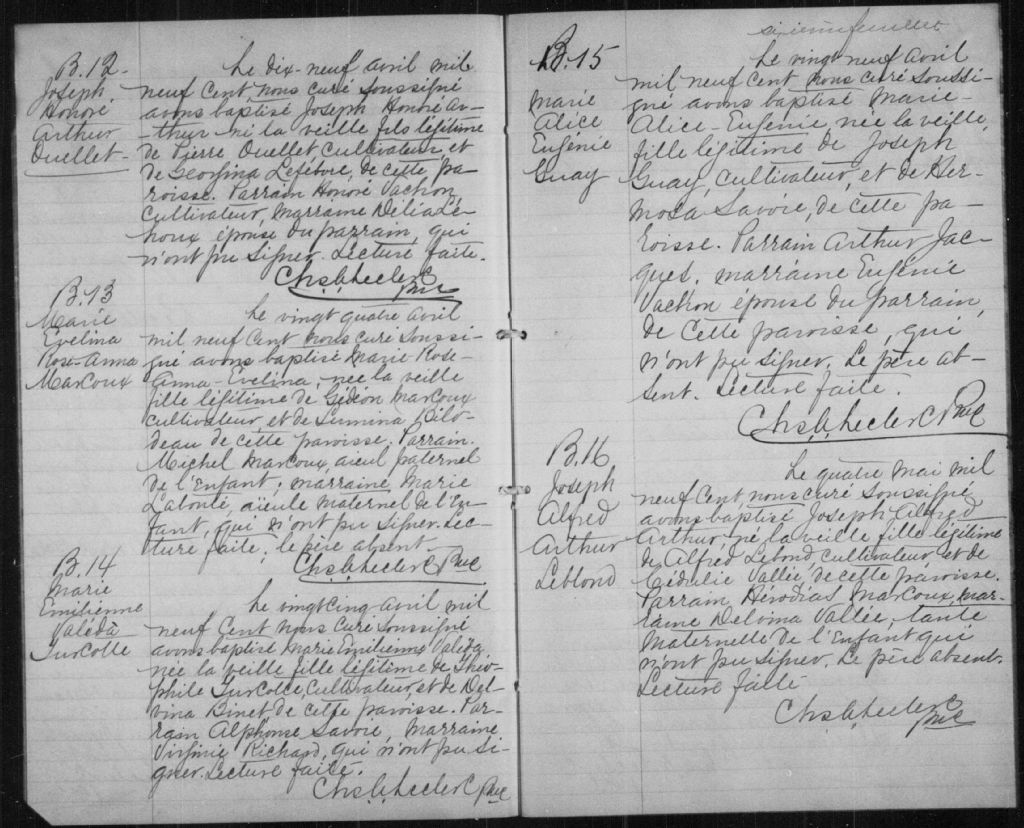 B.12
Joseph
Honoré
Arthur
Ouellet
Le dix-neuf avril mil
neuf cent nous curé soussigné
avons baptisé Joseph Honoré Ar-
-thur né la veille fils légitime
de Pierre Ouellet cultivateur et
de Georgina Lefébvre, de cette pa-
roisse. Parrain Honoré Vachon,
cultivateur, marraine Délia Lé-
houx épouse du parrain, qui
n'ont pu signer. Lecture faite.
Ptre
B.13
Marie
Evélina
Rose-Anna
Marcoux
Le vingt quatre avril
mil neuf cent nous curé soussi-
gné avons baptisé Marie Rose-
Anna-Evelina, née la veille
fille légitime de Gédéon Marcoux
cultivateur et de Lumina Bilo-
deau de cette paroisse. Parrain
Michel Marcoux, aieul paternel
de l'Enfant, marraine Marie
Labonté, aïeule maternel de l'En-
fant, qui n'ont pu signer. Lec-
ture faite, le père absent.
Ptre
B.14
Marie
Emilienne
Valéda
Turcotte
Le vingt cinq avril mil
neuf cent nous curé soussigné
avons baptisé Marie Emilienne Valéda
née la veille fille légitime de Théo-
phile Turcotte, cultivateur, et de Del-
vina Binet de cette paroisse. Par-
rain Alphonse Savoie, marraine
Virginie Richard, qui n'ont pu si-
gner. Lecture faite.
Ptre
sixième feuillet
B.15
Marie
Alice
Eugénie
Guay
Le vingt neuf avril
mil neuf cent nous curé soussi-
gné avons baptisé Marie-
Alice-Eugénie, née la veille,
fille légitime de Joseph
Guay, cultivateur, et de Her-
mosa Savoie, de cette pa-
roisse. Parrain Arthur Jac-
ques, marraine Eugénie
Vachon épouse du parrain,
de cette paroisse, qui
n'ont pu signer. Le père ab-
sent. Lecture faite.
Ptre
B.16
Joseph
Alfred
Arthur
Leblond
Le quatre mai mil
neuf cent nous curé soussigné
avons baptisé Joseph Alfred
Arthur, né la veille fille légitime
de Alfred Lebond, cultivateur, et de
Cédulie Vallée, de cette paroisse.
Parrain Hérodias Marcoux, mar-
raine Deloma Vallée, tante
maternelle de l'Enfant qui
n'ont pu signer. Le père absent.
Lecture faite
Ptre